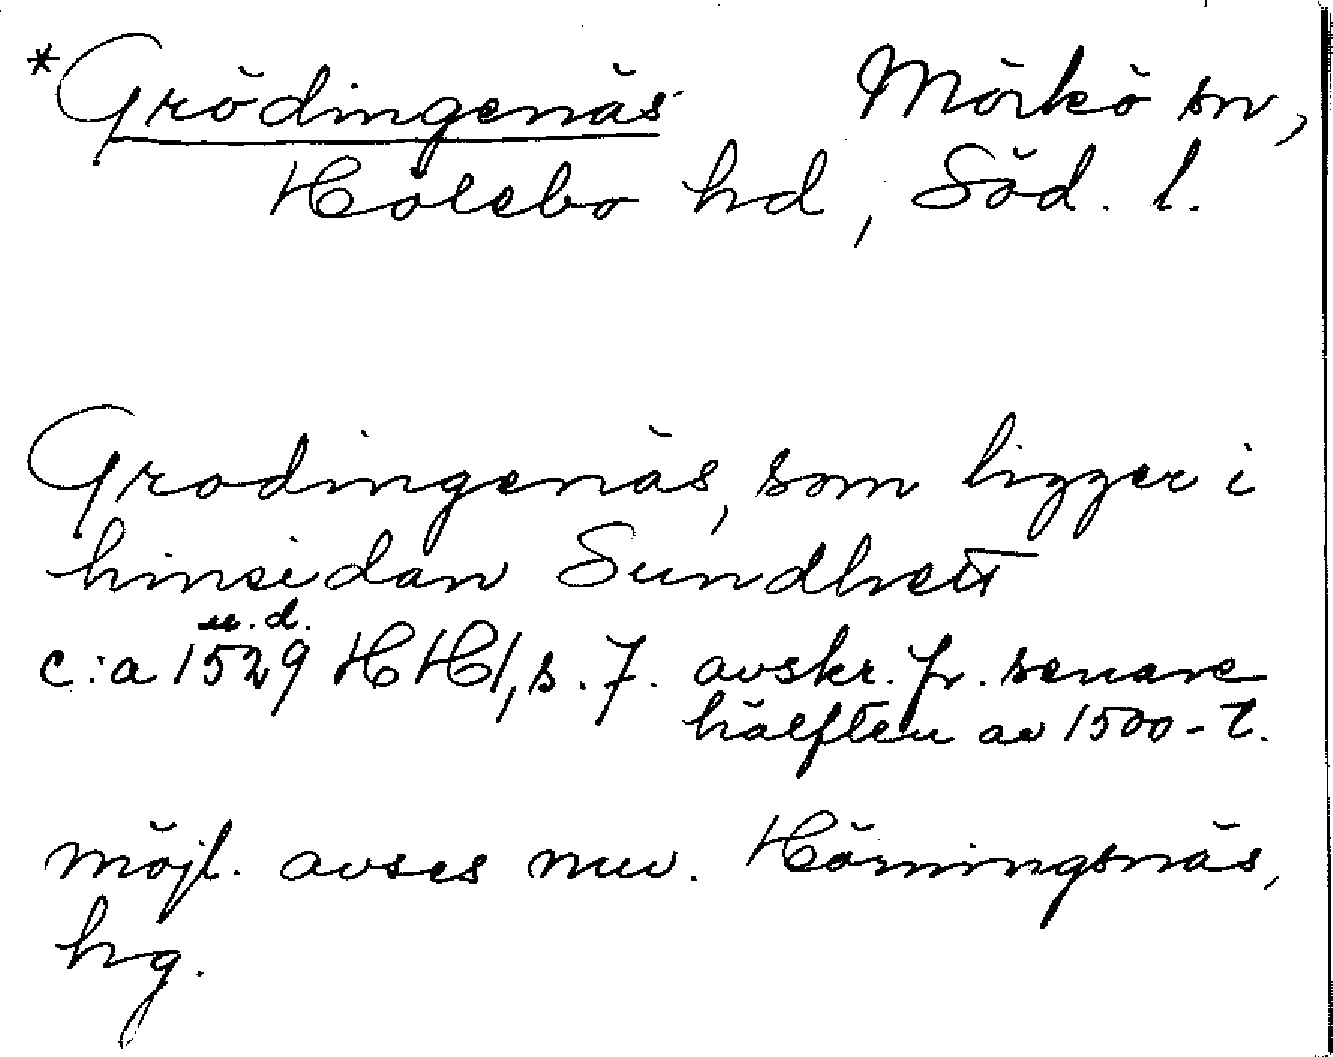 *Grödingenäs Mörkö sn,
Hölebo hd, Söd. l.
Grodingenäs, som ligger i
hinsidan Sundhett
u.d.
c:a 1529 HH1, s. 7. avskr. fr. senare
hälften av 1500-t.
möjl. avses nuv. Hörningsnäs,
hg.